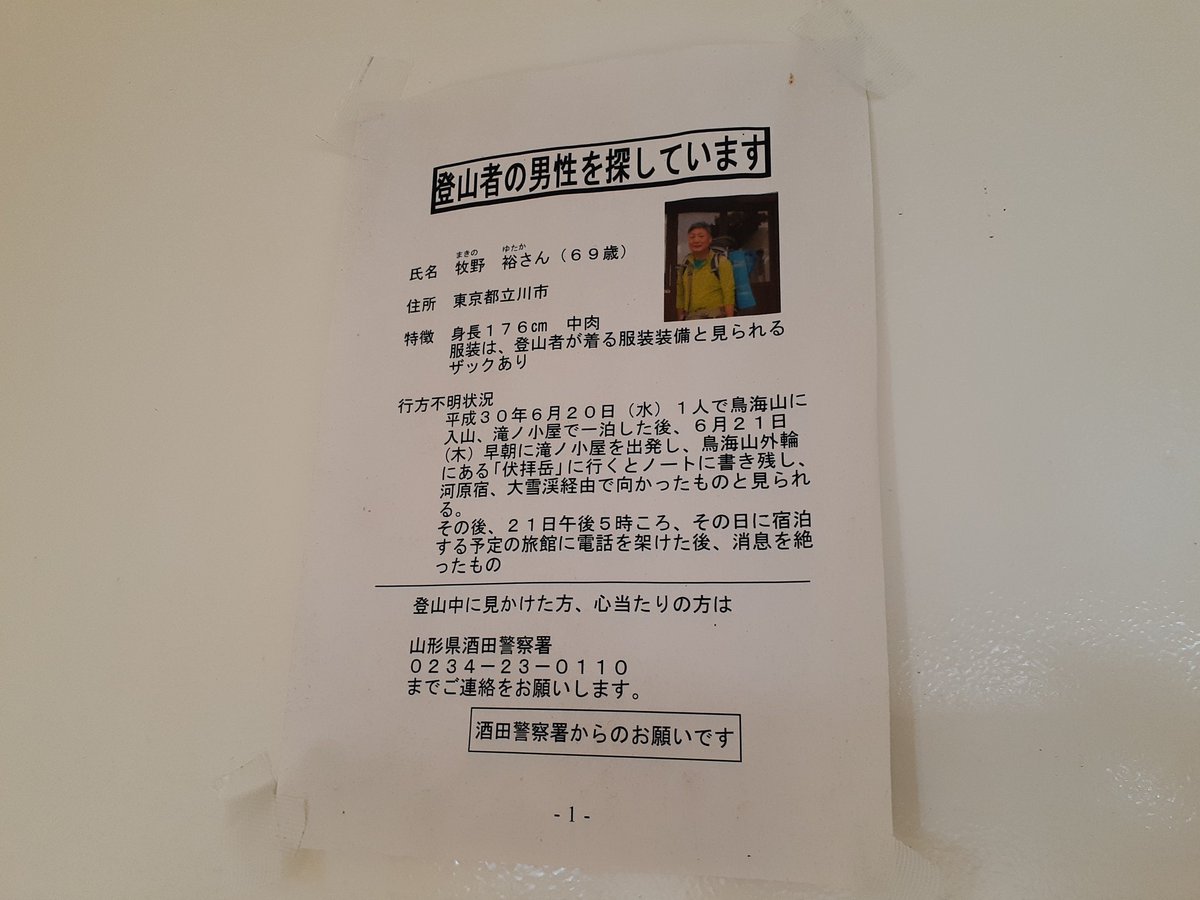 登山者の男性を探しています
まきの ゆたか
氏名 牧野 裕さん（６９歳）
住所 東京都立川市
特徴 身長１７６㎝ 中肉
服装は、登山者が着る服装装備と見られる
ザックあり
行方不明状況
平成３０年６月２０日（水）１人で鳥海山に
入山、滝ノ小屋で一泊した後、６月２１日
（木）早朝に滝ノ小屋を出発し、鳥海山外輪
にある「伏拝岳」に行くとノートに書き残し、
河原宿、大雪渓経由で向かったものと見られ
る。
その後、２１日午後５時ころ、その日に宿泊
する予定の旅館に電話を架けた後、消息を絶
ったもの
登山中に見かけた方、心当たりの方は
山形県酒田警察署
０２３４－２３－０１１０
までご連絡をお願いします。
酒田警察署からのお願いです
- 1 -